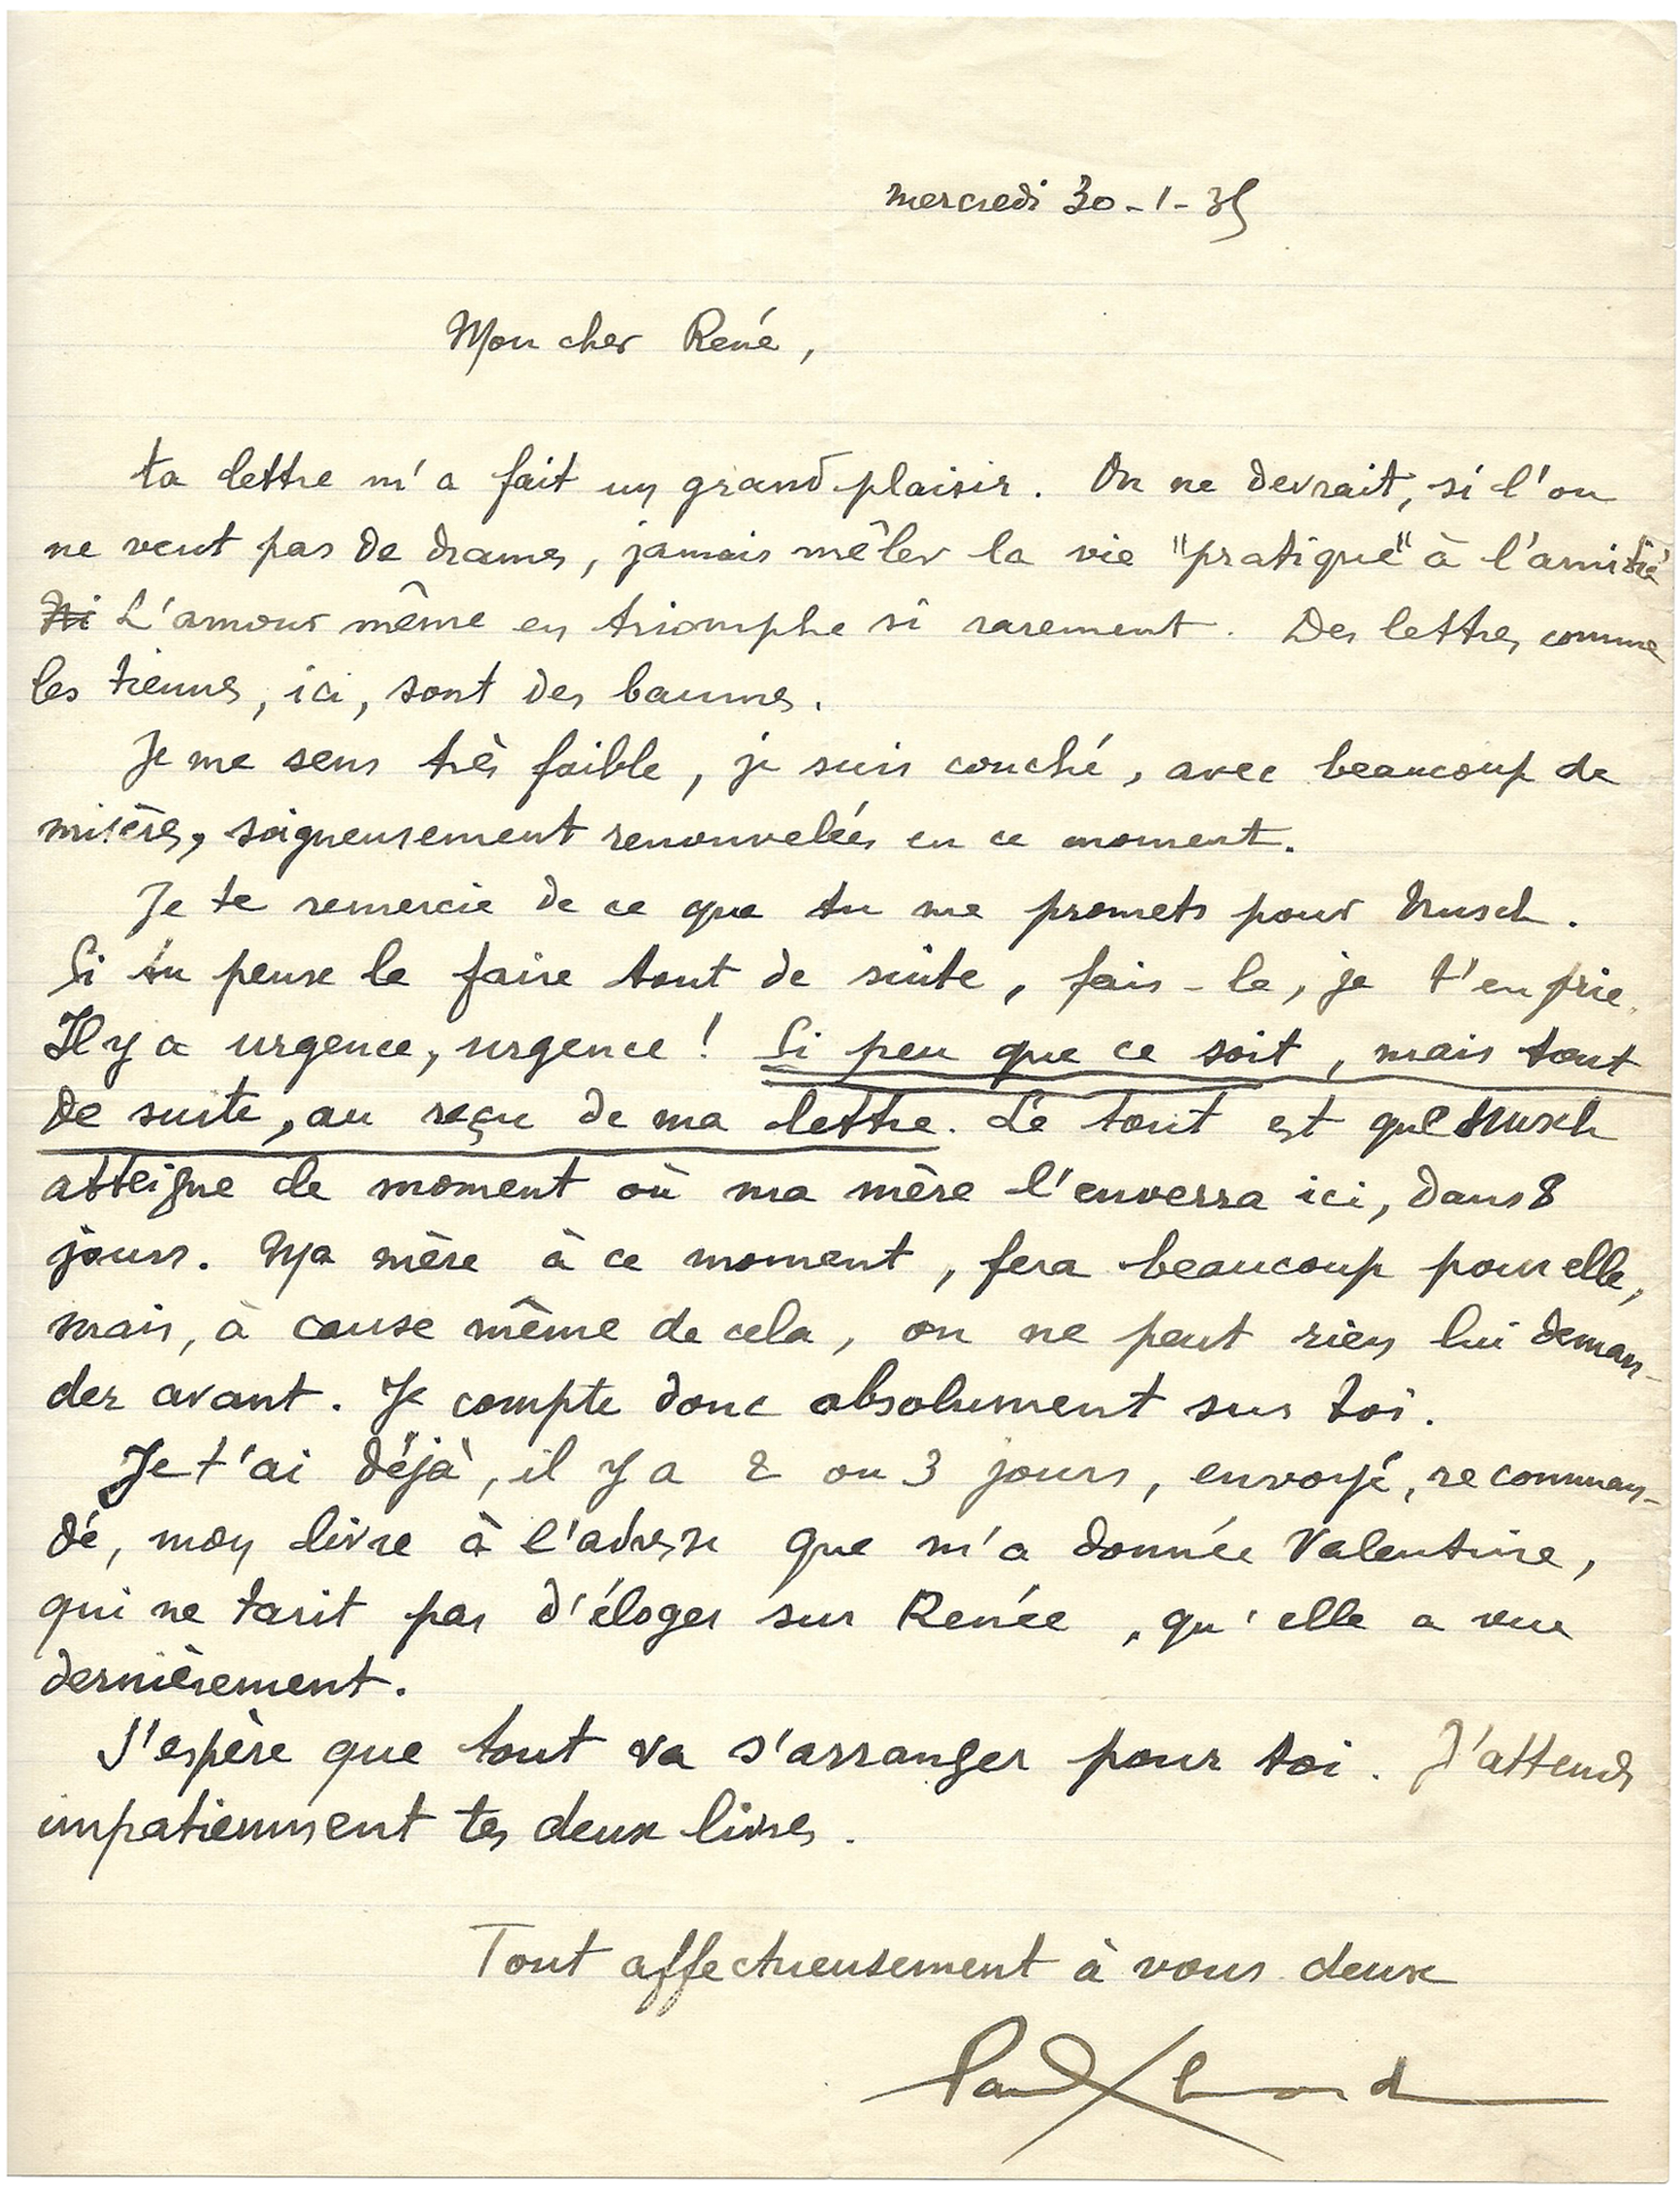 mercredi 30-1-35
Mon cher René,
ta lettre m'a fait un grand plaisir. On ne devrait, si l'on
ne veut pas de drames, jamais mêler la vie "pratique" à l'amitié
L'amour même en triomphe si rarement. Des lettres comme
les tiennes, ici, sont des baumes.
Je me sens très faible, je suis couché, avec beaucoup de
misères, soigneusement renouvelées en ce moment.
Je te remercie de ce que tu me promets pour Nusch.
Si tu peux le faire tout de suite, fais-le, je t'en prie.
Il y a urgence, urgence ! Si peu que ce soit, mais tout
de suite, au reçu de ma lettre. Le tout est que Nusch
atteigne le moment où ma mère l'enverra ici, dans 8
jours. Ma mère à ce moment, fera beaucoup pour elle,
mais, à cause même de cela, on ne peut rien lui deman-
der avant. Je compte donc absolument sur toi.
Je t'ai déjà, il y a 2 ou 3 jours, envoyé, recomman-
dé, mon livre à l'adresse que m'a donnée Valentine,
qui ne tarit pas d'éloges sur Renée, qu'elle a vue
dernièrement.
J'espère que tout va s'arranger pour toi. J'attends
impatiemment tes deux livres.
Tout affectueusement à vous deux
Paul Eluard